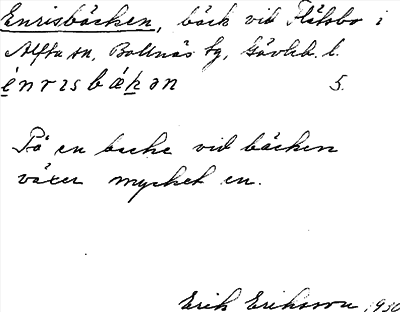 Enrisbäcken, bäck vid Flätsbo i
Alfta sn, Bollnäs tg, Gävleb. l.
5.
På en backe vid bäcken
växer mycket en.
Erik Eriksson, 1930